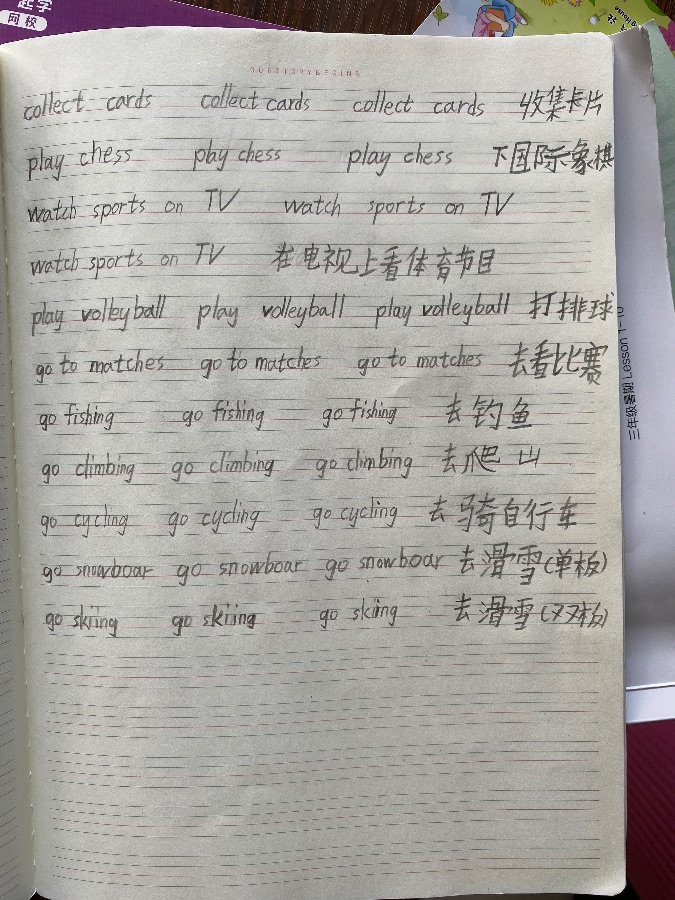 起学
网校
OURSTORYBEGINS
collect cards collect cards collect cards 收集卡片
play chess phy chess play chess 下国际象棋
watch sports on TV watch sports on TV
watch sports on TV 在电视上看体育节目
play volleyball play volleyball play volleyball 打排球
go to matches go to matches go to matches 去看比赛
go fishing go fishing go fishing 去钓鱼
go climbing go climbing go climbing 去爬山
go cycling go cycling go cycling 去骑自行车
go snowboar go snowboar go snowboar 去滑雪(单板)
go skiing go skiing go skiing 去滑雪(双板)
三年级暑期 Lesson 1-10